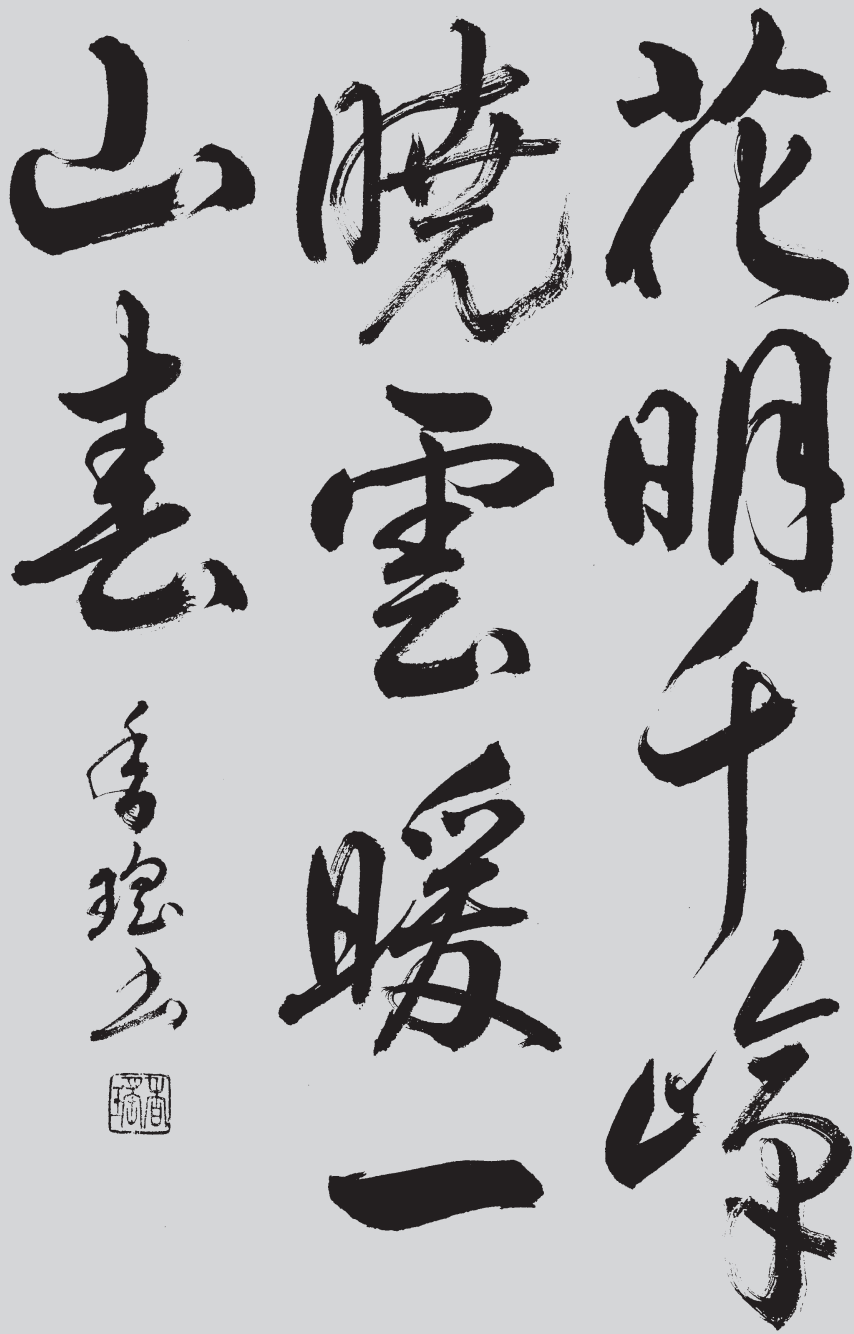 花明千峰
暁雲暖一
山春
香瑶書
香瑶